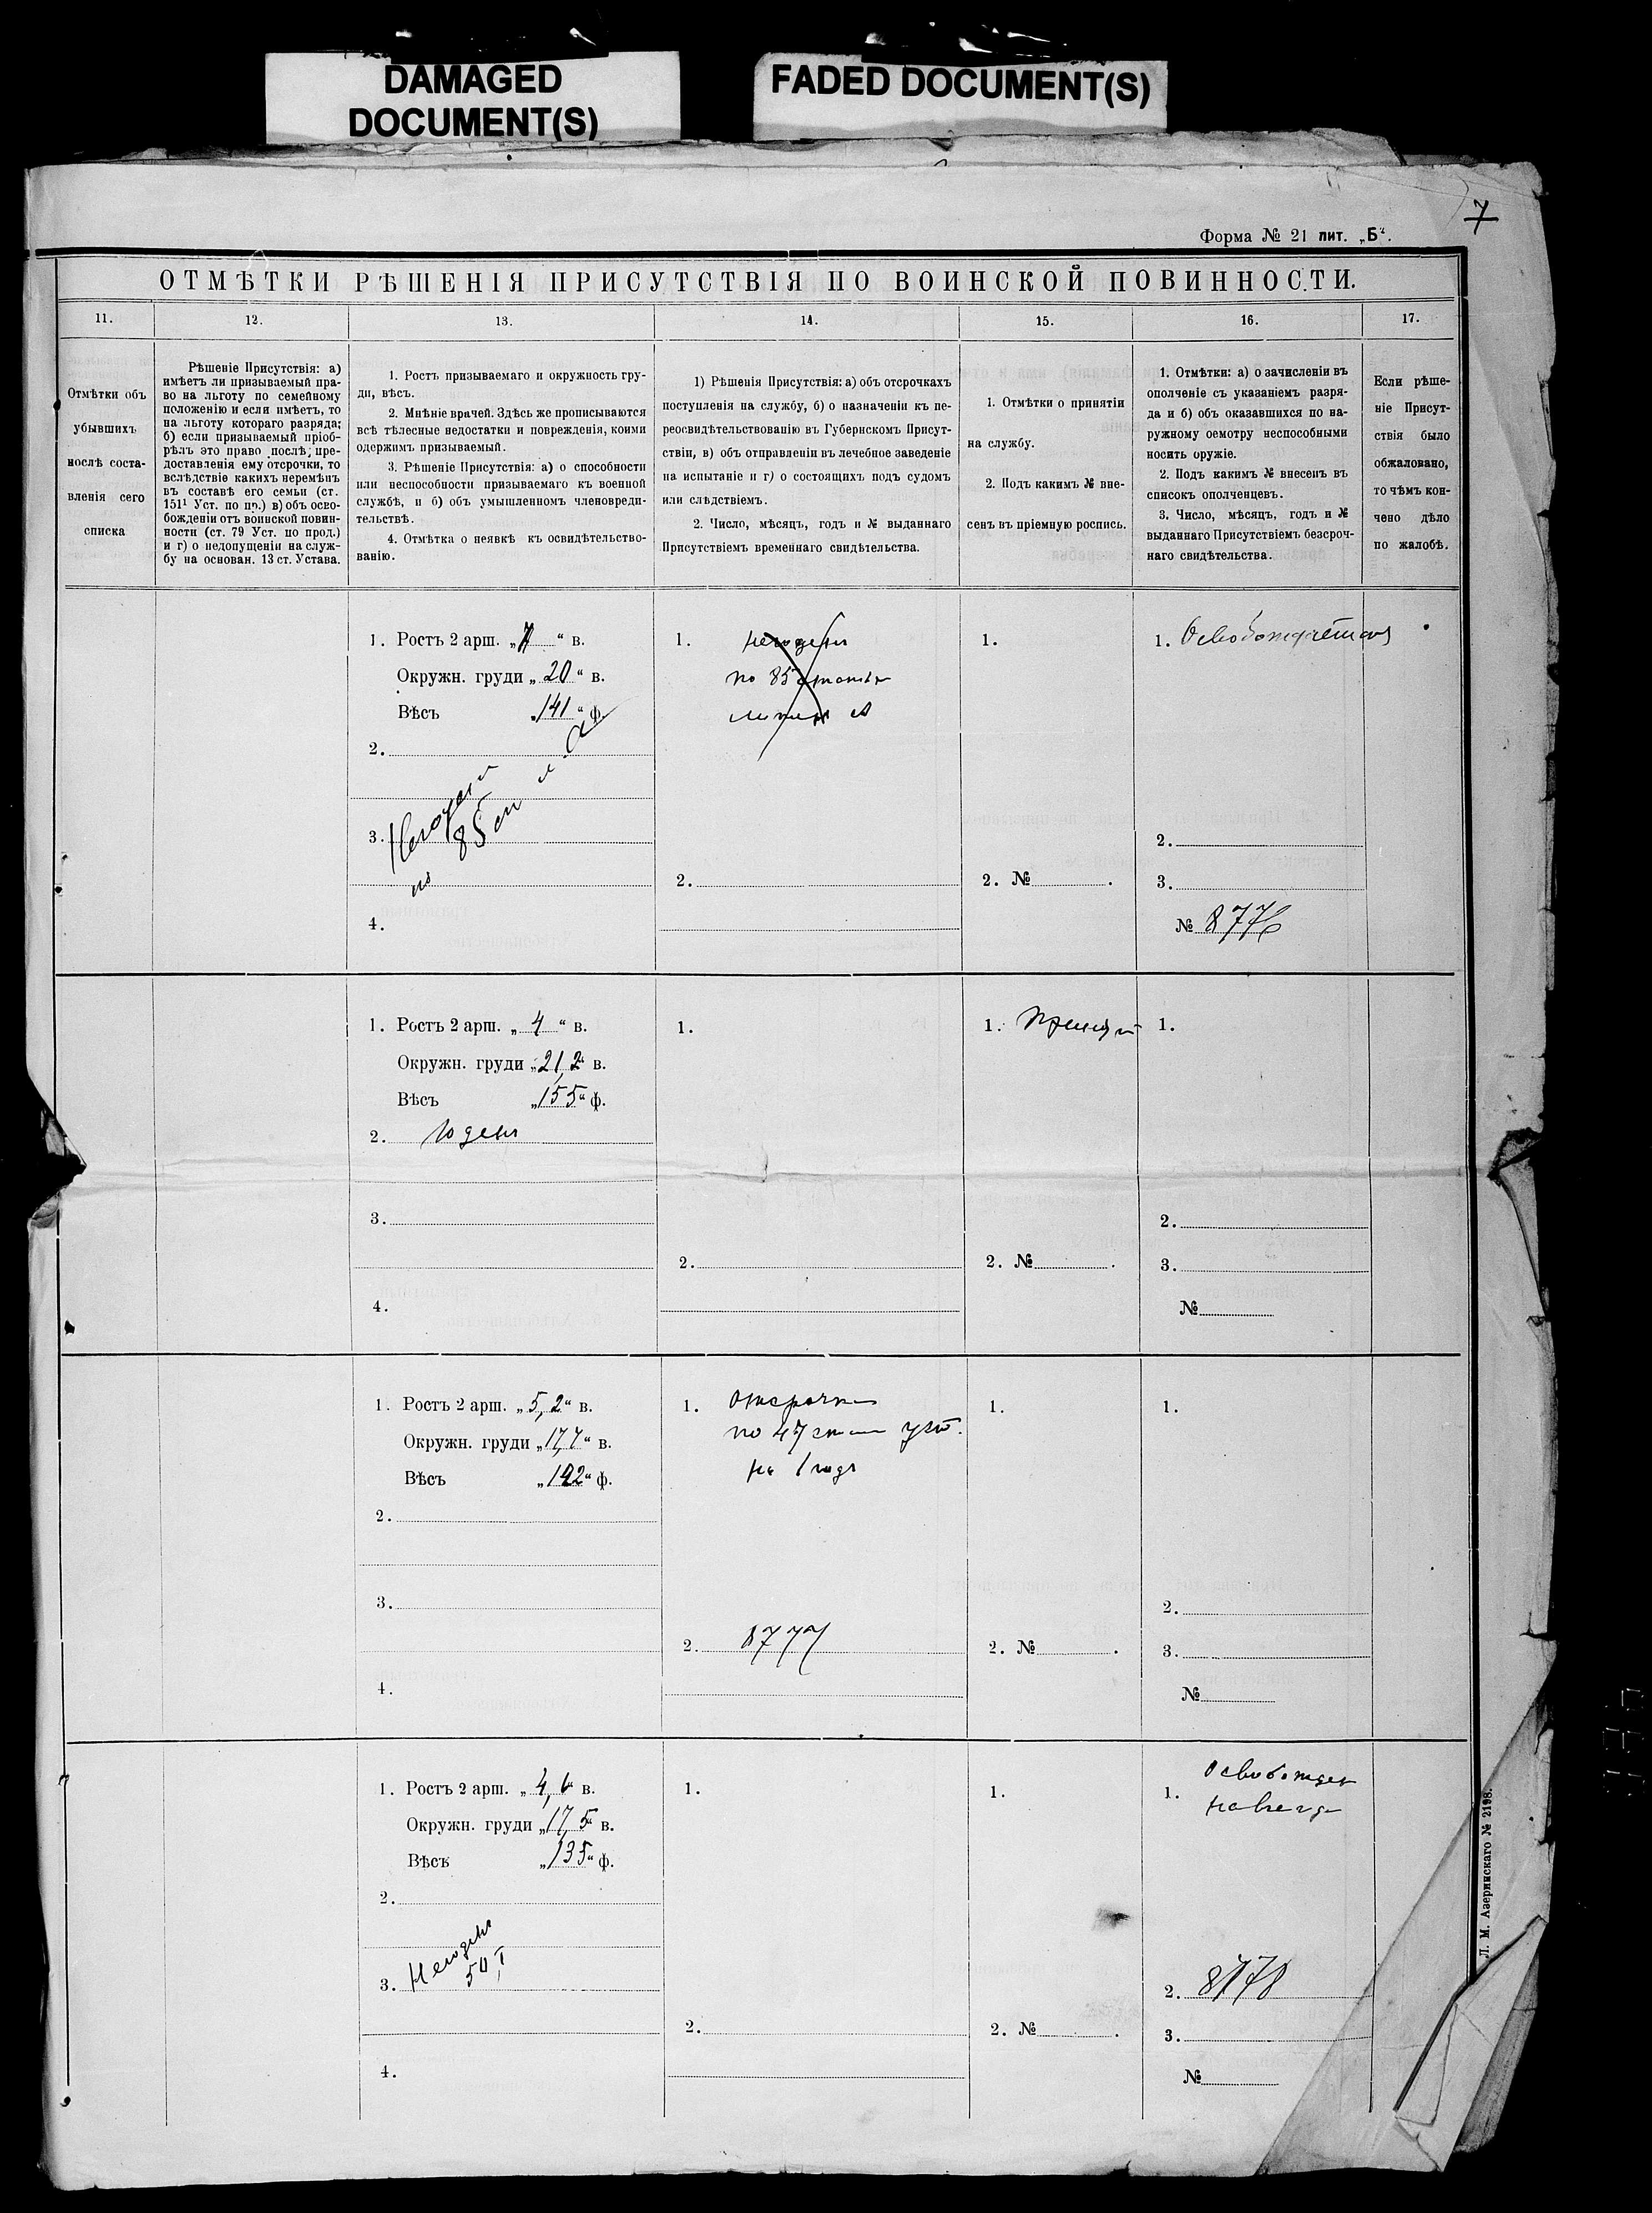 DAMAGED
DOCUMENT(S)
FADED DOCUMENT(S)
7
Форма № 21 лит. „Б“.
ОТМѢТКИ РѢШЕНІЯ ПРИСУТСТВІЯ ПО ВОИНСКОЙ ПОВИННОСТИ.
11.
12.
13.
14.
15.
16.
17.
Отмѣтки объ
убывшихъ
послѣ соста-
вленія сего
списка
Рѣшеніе Присутствія: а)
имѣетъ ли призываемый пра-
во на льготу по семейному
положенію и если имѣетъ, то
на льготу котораго разряда;
б) если призываемый пріоб-
рѣлъ это право послѣ, пре-
доставленія ему отсрочки, то
вслѣдствіе какихъ перемѣнъ
въ составѣ его семьи (ст.
151¹ Уст. по пр.) в) объ осво-
божденіи отъ воинской повин-
ности (ст. 79 Уст. по прод.)
и г) о недопущеніи на служ-
бу на основан. 13 ст. Устава.
1. Ростъ призываемаго и окружность гру-
ди, вѣсъ.
2. Мнѣніе врачей. Здѣсь же прописываются
всѣ тѣлесные недостатки и поврежденія, коими
одержимъ призываемый.
3. Рѣшеніе Присутствія: а) о способности
или неспособности призываемаго къ военной
службѣ, и б) объ умышленномъ членовреди-
тельствѣ.
4. Отмѣтка о неявкѣ къ освидѣтельство-
ванію.
1) Рѣшенія Присутствія: а) объ отсрочкахъ
поступленія на службу, б) о назначеніи къ пе-
реосвидѣтельствованію въ Губернскомъ Присут-
ствіи, в) объ отправленіи въ лечебное заведеніе
на испытаніе и г) о состоящихъ подъ судомъ
или слѣдствіемъ.
2. Число, мѣсяцъ, годъ и № выданнаго
Присутствіемъ временнаго свидѣтельства.
1. Отмѣтки о принятіи
на службу.
2. Подъ какимъ № вне-
сенъ въ пріемную роспись.
1. Отмѣтки: а) о зачисленіи въ
ополченіе съ указаніемъ разря-
да и б) объ оказавшихся по на-
ружному осмотру неспособными
носить оружіе.
2. Подъ какимъ № внесенъ въ
списокъ ополченцевъ.
3. Число, мѣсяцъ, годъ и №
выданнаго Присутствіемъ безсроч-
наго свидѣтельства.
Если рѣше-
ніе Присут-
ствія было
обжаловано,
то чѣмъ кон-
чено дѣло
по жалобѣ.
1. Ростъ 2 арш. „7“ в.
Окружн. груди „20“ в.
Вѣсъ „141“ ф.
2.
3. Негоденъ
по 85 ст
4.
1. негоденъ
по 85 статьѣ
литера А
2.
1.
2. №
1. Освобождается
2.
3.
№ 8776
1. Ростъ 2 арш. „4“ в.
Окружн. груди „21,2“ в.
Вѣсъ „155“ ф.
2. Годенъ
3.
4.
1.
2.
1. Принятъ
2. №
1.
2.
3.
№
1. Ростъ 2 арш. „5,2“ в.
Окружн. груди „17,7“ в.
Вѣсъ „142“ ф.
2.
3.
4.
1. Отсрочка
по 47 ст уст.
на 1 годъ
2. 8777
1.
2. №
1.
2.
3.
№
1. Ростъ 2 арш. „4,6“ в.
Окружн. груди „17,5“ в.
Вѣсъ „135“ ф.
2.
3. Негоденъ
4.
1.
2.
1.
2. №
1. Освобожденъ
навсегда
2. 8778
3.
№
Л. М. Азеринскаго № 2198.